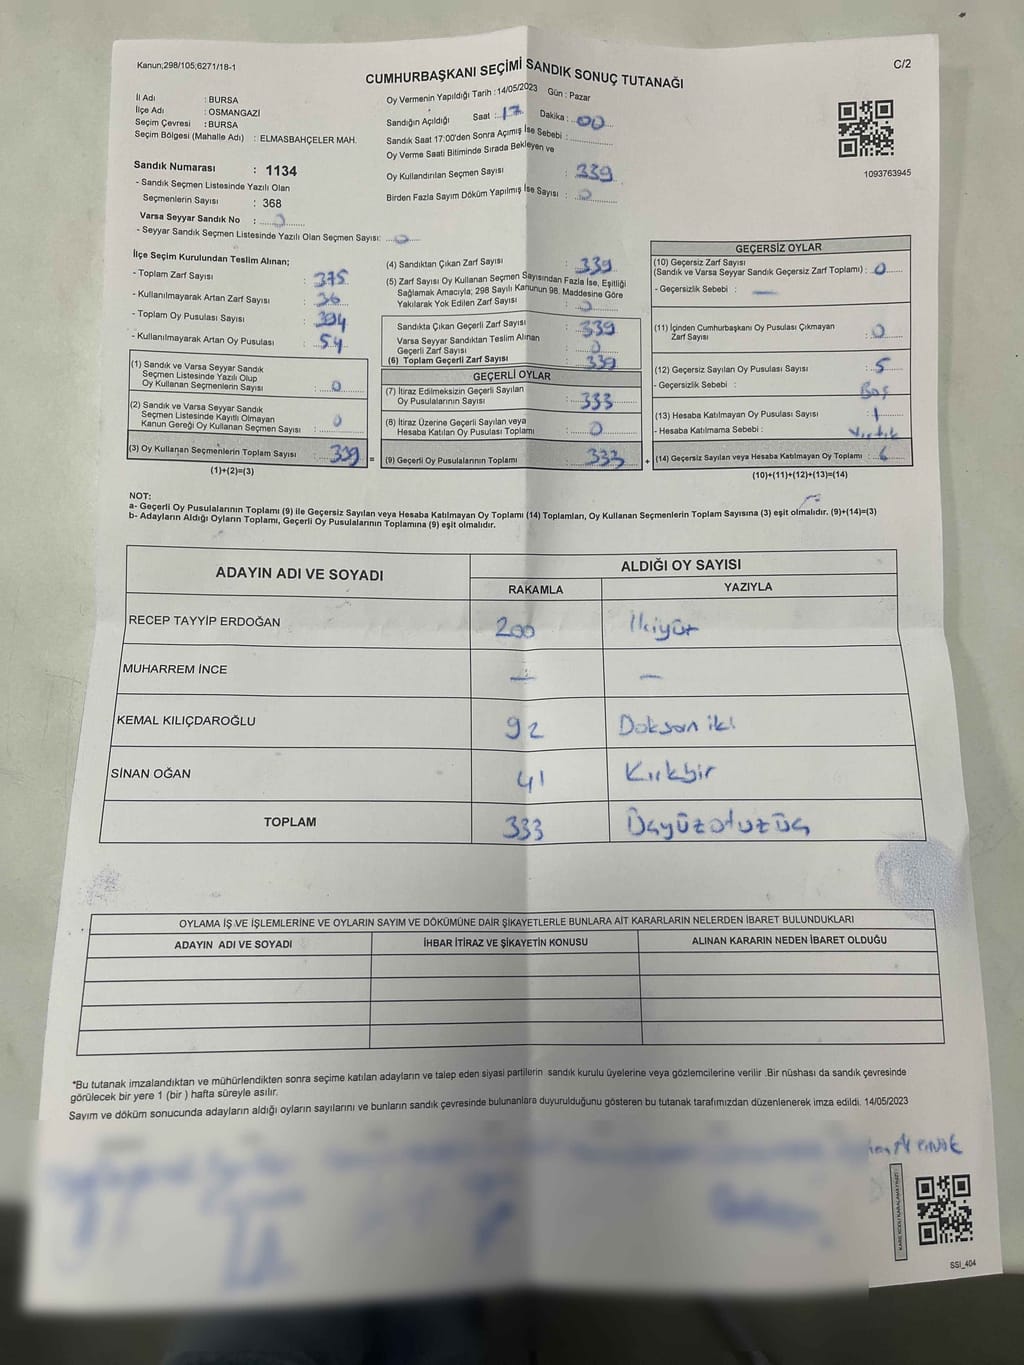 Kanun;298/105;6271/18-1
C/2
CUMHURBAŞKANI SEÇİMİ SANDIK SONUÇ TUTANAĞI
İl Adı : BURSA
İlçe Adı : OSMANGAZİ
Seçim Çevresi : BURSA
Seçim Bölgesi (Mahalle Adı) : ELMASBAHÇELER MAH.
Oy Vermenin Yapıldığı Tarih : 14/05/2023 Gün : Pazar
Sandığın Açıldığı Saat : 17 Dakika : 00
Sandık Saat 17:00'den Sonra Açımış İse Sebebi :
Oy Verme Saati Bitiminde Sırada Bekleyen ve
Oy Kullandırılan Seçmen Sayısı : 339
Birden Fazla Sayım Döküm Yapılmış İse Sayısı : 0
1093763945
Sandık Numarası : 1134
- Sandık Seçmen Listesinde Yazılı Olan
Seçmenlerin Sayısı : 368
Varsa Seyyar Sandık No : 0
- Seyyar Sandık Seçmen Listesinde Yazılı Olan Seçmen Sayısı: 0
İlçe Seçim Kurulundan Teslim Alınan;
- Toplam Zarf Sayısı : 375
- Kullanılmayarak Artan Zarf Sayısı : 36
- Toplam Oy Pusulası Sayısı : 394
- Kullanılmayarak Artan Oy Pusulası : 54
(1) Sandık ve Varsa Seyyar Sandık
Seçmen Listesinde Yazılı Olup
Oy Kullanan Seçmenlerin Sayısı : 0
(2) Sandık ve Varsa Seyyar Sandık
Seçmen Listesinde Kayıtlı Olmayan
Kanun Gereği Oy Kullanan Seçmen Sayısı : 0
(3) Oy Kullanan Seçmenlerin Toplam Sayısı : 339
(1)+(2)=(3)
(4) Sandıktan Çıkan Zarf Sayısı : 339
(5) Zarf Sayısı Oy Kullanan Seçmen Sayısından Fazla İse, Eşitliği
Sağlamak Amacıyla; 298 Sayılı Kanunun 98. Maddesine Göre
Yakılarak Yok Edilen Zarf Sayısı : 0
Sandıkta Çıkan Geçerli Zarf Sayısı : 339
Varsa Seyyar Sandıktan Teslim Alınan
Geçerli Zarf Sayısı : 0
(6) Toplam Geçerli Zarf Sayısı : 339
GEÇERLİ OYLAR
(7) İtiraz Edilmeksizin Geçerli Sayılan
Oy Pusulalarının Sayısı : 333
(8) İtiraz Üzerine Geçerli Sayılan veya
Hesaba Katılan Oy Pusulası Toplamı : 0
= (9) Geçerli Oy Pusulalarının Toplamı : 333 +
GEÇERSİZ OYLAR
(10) Geçersiz Zarf Sayısı
(Sandık ve Varsa Seyyar Sandık Geçersiz Zarf Toplamı) : 0
- Geçersizlik Sebebi : —
(11) İçinden Cumhurbaşkanı Oy Pusulası Çıkmayan
Zarf Sayısı : 0
(12) Geçersiz Sayılan Oy Pusulası Sayısı : 5
- Geçersizlik Sebebi : Boş
(13) Hesaba Katılmayan Oy Pusulası Sayısı : 1
- Hesaba Katılmama Sebebi : Yırtık
(14) Geçersiz Sayılan veya Hesaba Katılmayan Oy Toplamı : 6
(10)+(11)+(12)+(13)=(14)
NOT:
a- Geçerli Oy Pusulalarının Toplamı (9) ile Geçersiz Sayılan veya Hesaba Katılmayan Oy Toplamı (14) Toplamları, Oy Kullanan Seçmenlerin Toplam Sayısına (3) eşit olmalıdır. (9)+(14)=(3)
b- Adayların Aldığı Oyların Toplamı, Geçerli Oy Pusulalarının Toplamına (9) eşit olmalıdır.
ADAYIN ADI VE SOYADI
ALDIĞI OY SAYISI
RAKAMLA YAZIYLA
RECEP TAYYİP ERDOĞAN 200 İkiyüz
MUHARREM İNCE — —
KEMAL KILIÇDAROĞLU 92 Doksan iki
SİNAN OĞAN 41 Kırkbir
TOPLAM 333 Üçyüzotuzüç
OYLAMA İŞ VE İŞLEMLERİNE VE OYLARIN SAYIM VE DÖKÜMÜNE DAİR ŞİKAYETLERLE BUNLARA AİT KARARLARIN NELERDEN İBARET BULUNDUKLARI
ADAYIN ADI VE SOYADI İHBAR İTİRAZ VE ŞİKAYETİN KONUSU ALINAN KARARIN NEDEN İBARET OLDUĞU
*Bu tutanak imzalandıktan ve mühürlendikten sonra seçime katılan adayların ve talep eden siyasi partilerin sandık kurulu üyelerine veya gözlemcilerine verilir .Bir nüshası da sandık çevresinde
görülecek bir yere 1 (bir ) hafta süreyle asılır.
Sayım ve döküm sonucunda adayların aldığı oyların sayılarını ve bunların sandık çevresinde bulunanlara duyurulduğunu gösteren bu tutanak tarafımızdan düzenlenerek imza edildi. 14/05/2023
SSI_404